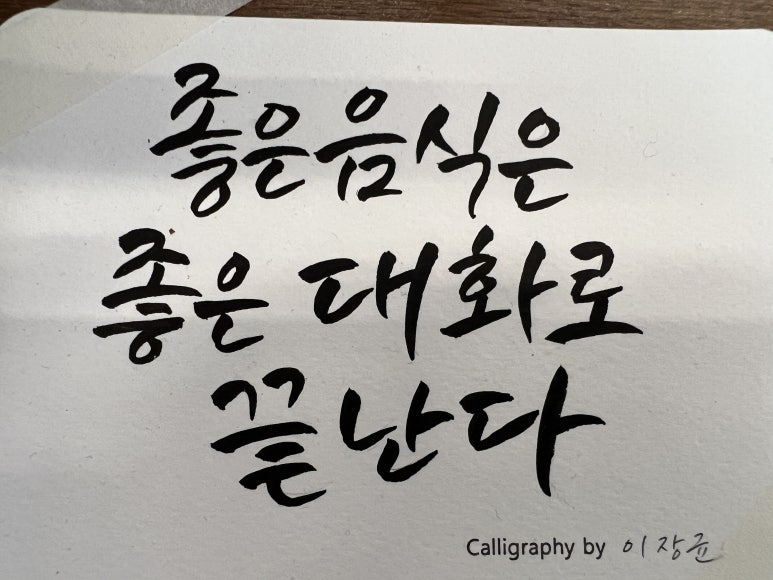 좋은음식은
좋은 대화로
끝난다
Calligraphy by 이장균